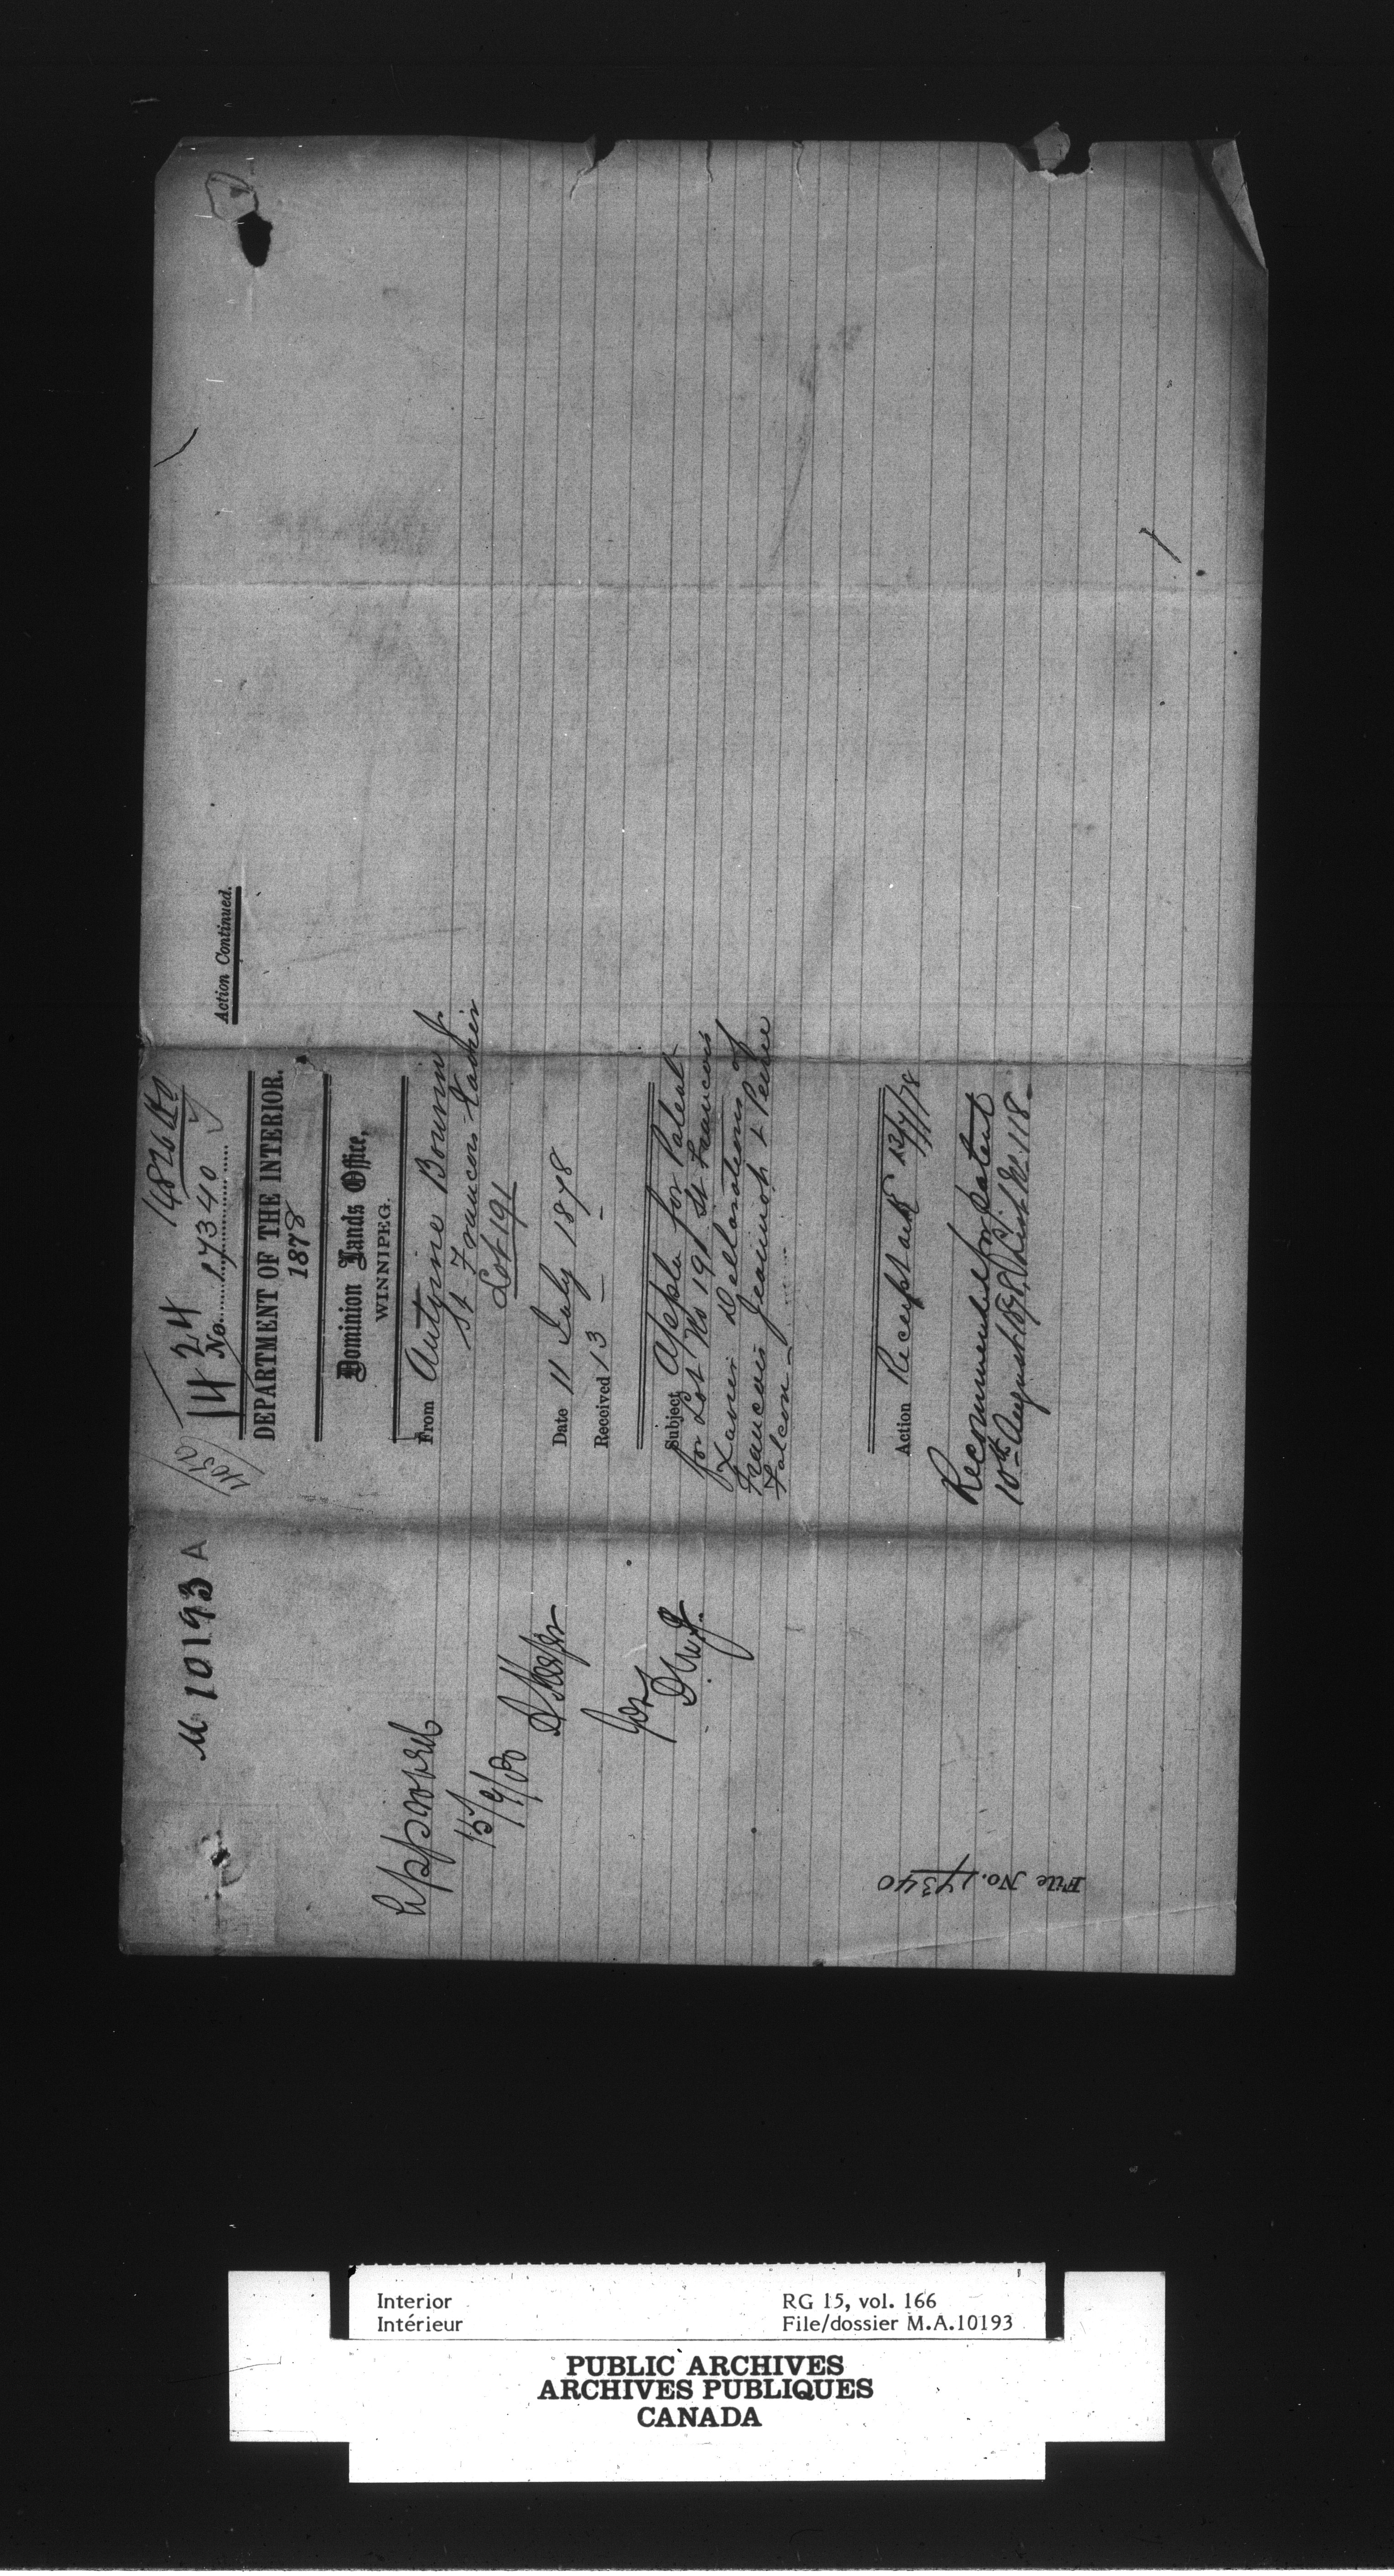 M 10193 A
Approved
15/9/80
for
14 24
14826 HO
No. 17340
DEPARTMENT OF THE INTERIOR.
1878
Dominion Lands Office,
WINNIPEG.
From Antoine
St Francois Xavier
Lot 191
Date 11 July 1878
Received 13 — —
Subject Appln for Patent
for Lot No 191 St Francois
Xavier Declarations of
Francois Jeannot & Pierre
Falcon —
Action Receipt ackd 12/7/78
Recommended for Patent
10th August 1878, List No. 118 —
Action Continued.
File No. 17340
Interior
Intérieur
RG 15, vol. 166
File/dossier M.A.10193
PUBLIC ARCHIVES
ARCHIVES PUBLIQUES
CANADA